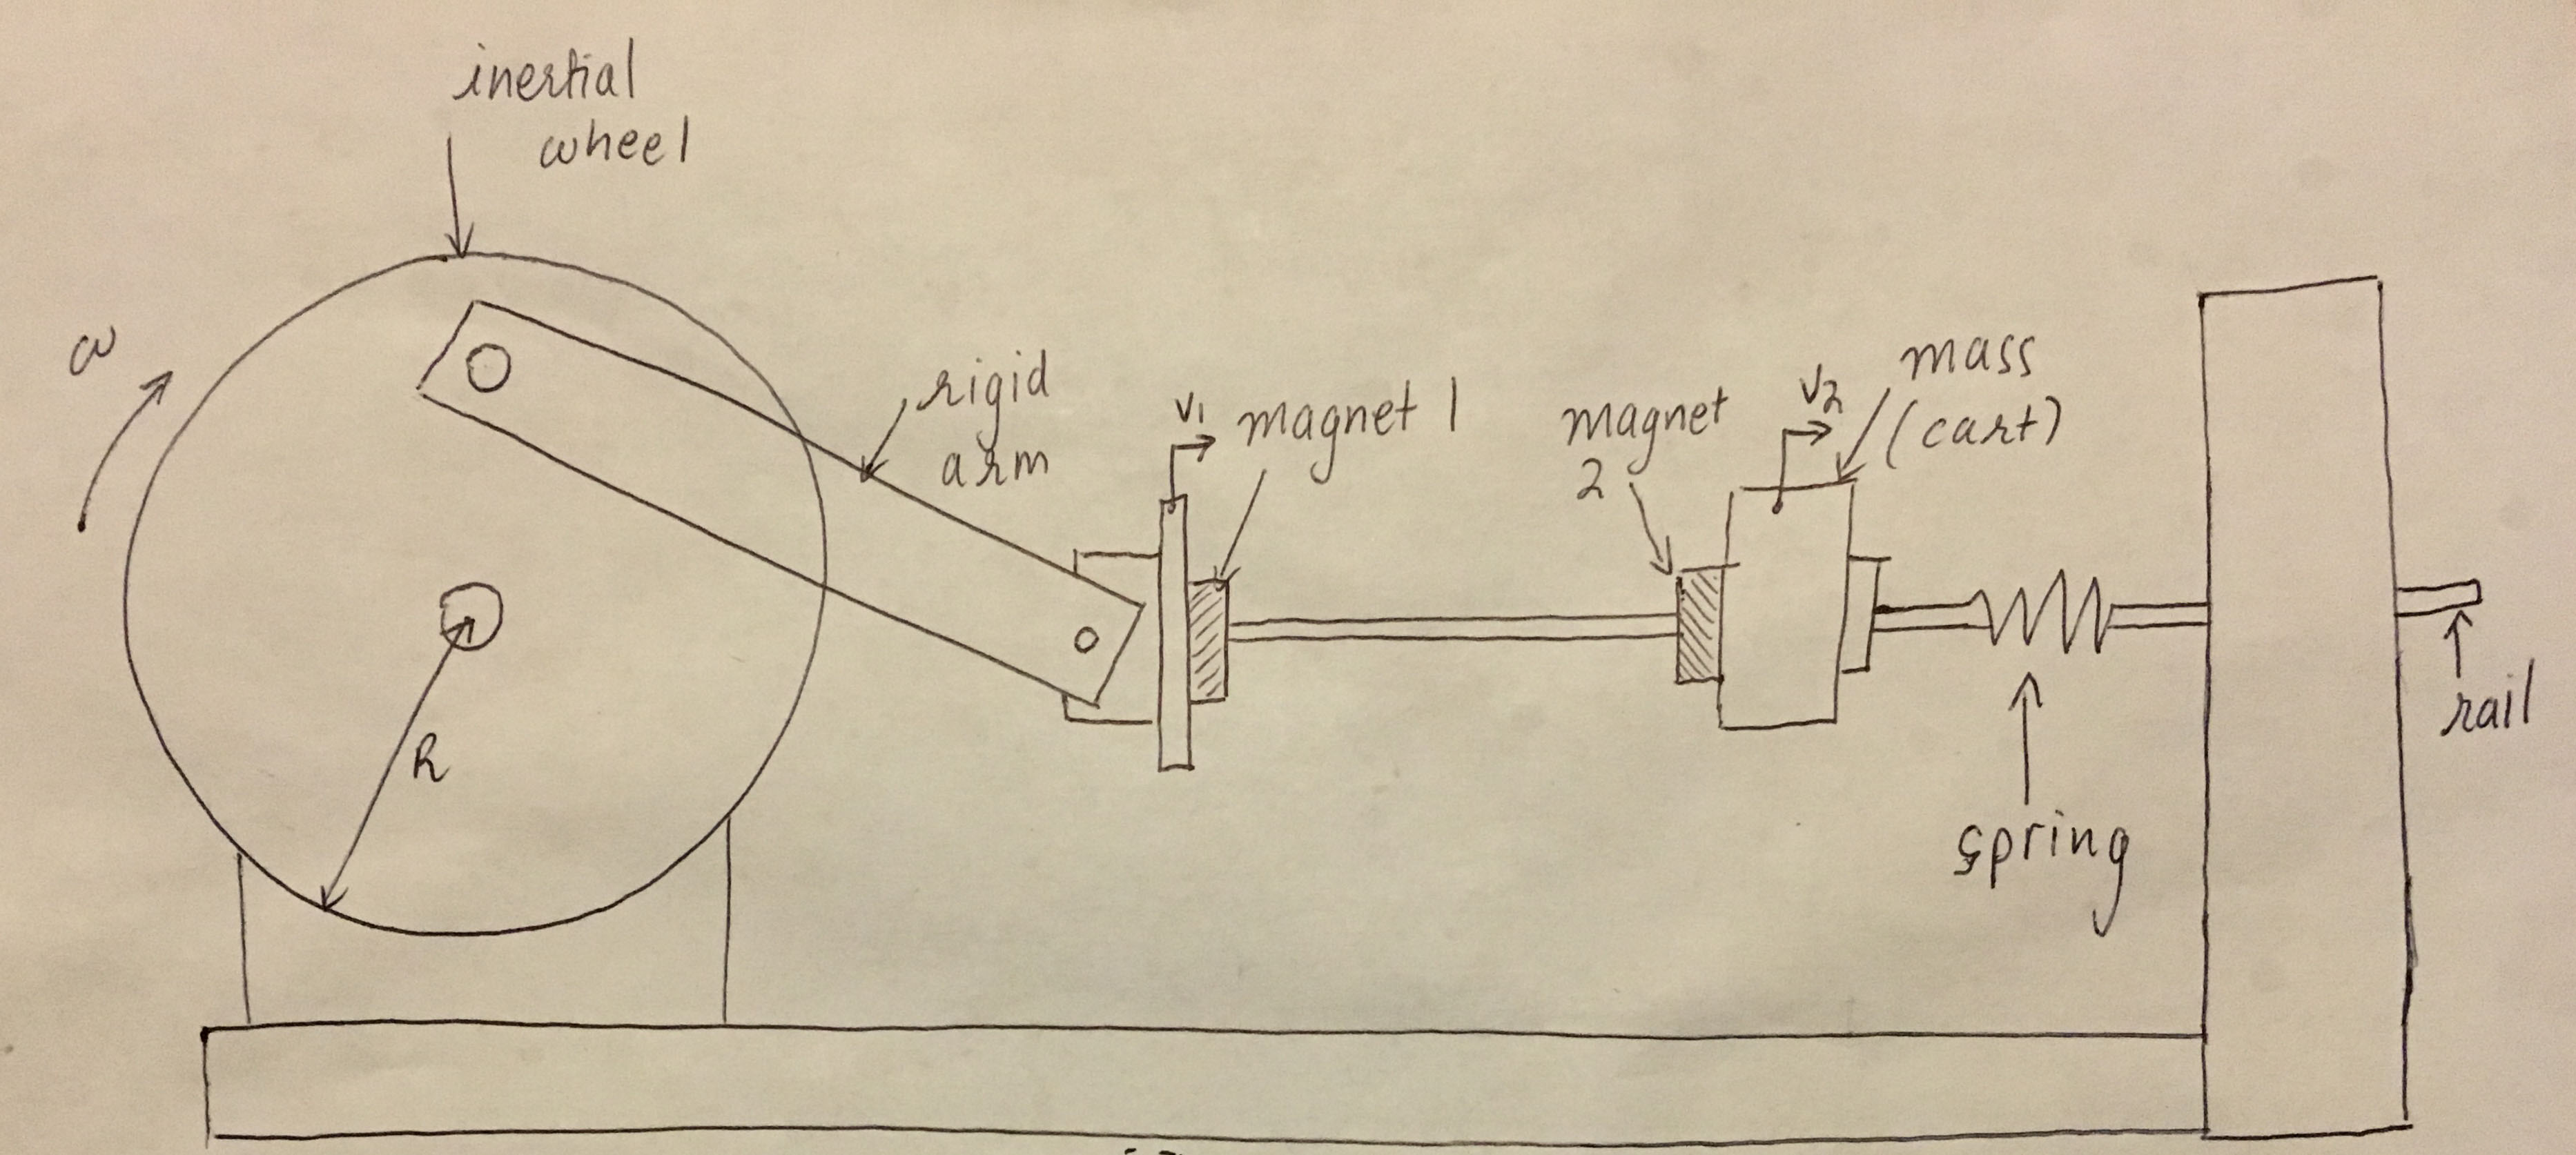 inertial
wheel
ω
rigid
arm
v1
magnet 1
magnet
2
v2
mass
(cart)
R
spring
rail